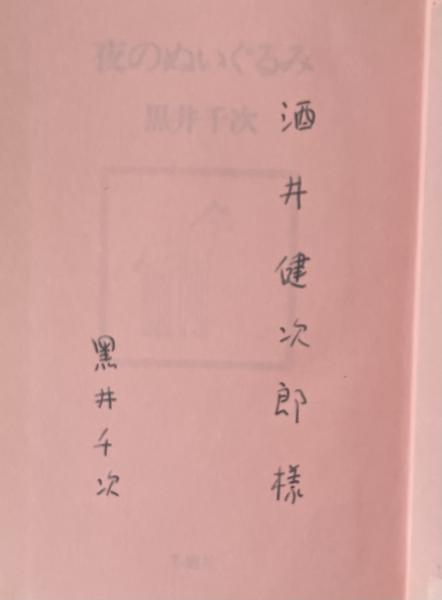 酒井健次郎様
黒井千次
夜のぬいぐるみ
黒井千次